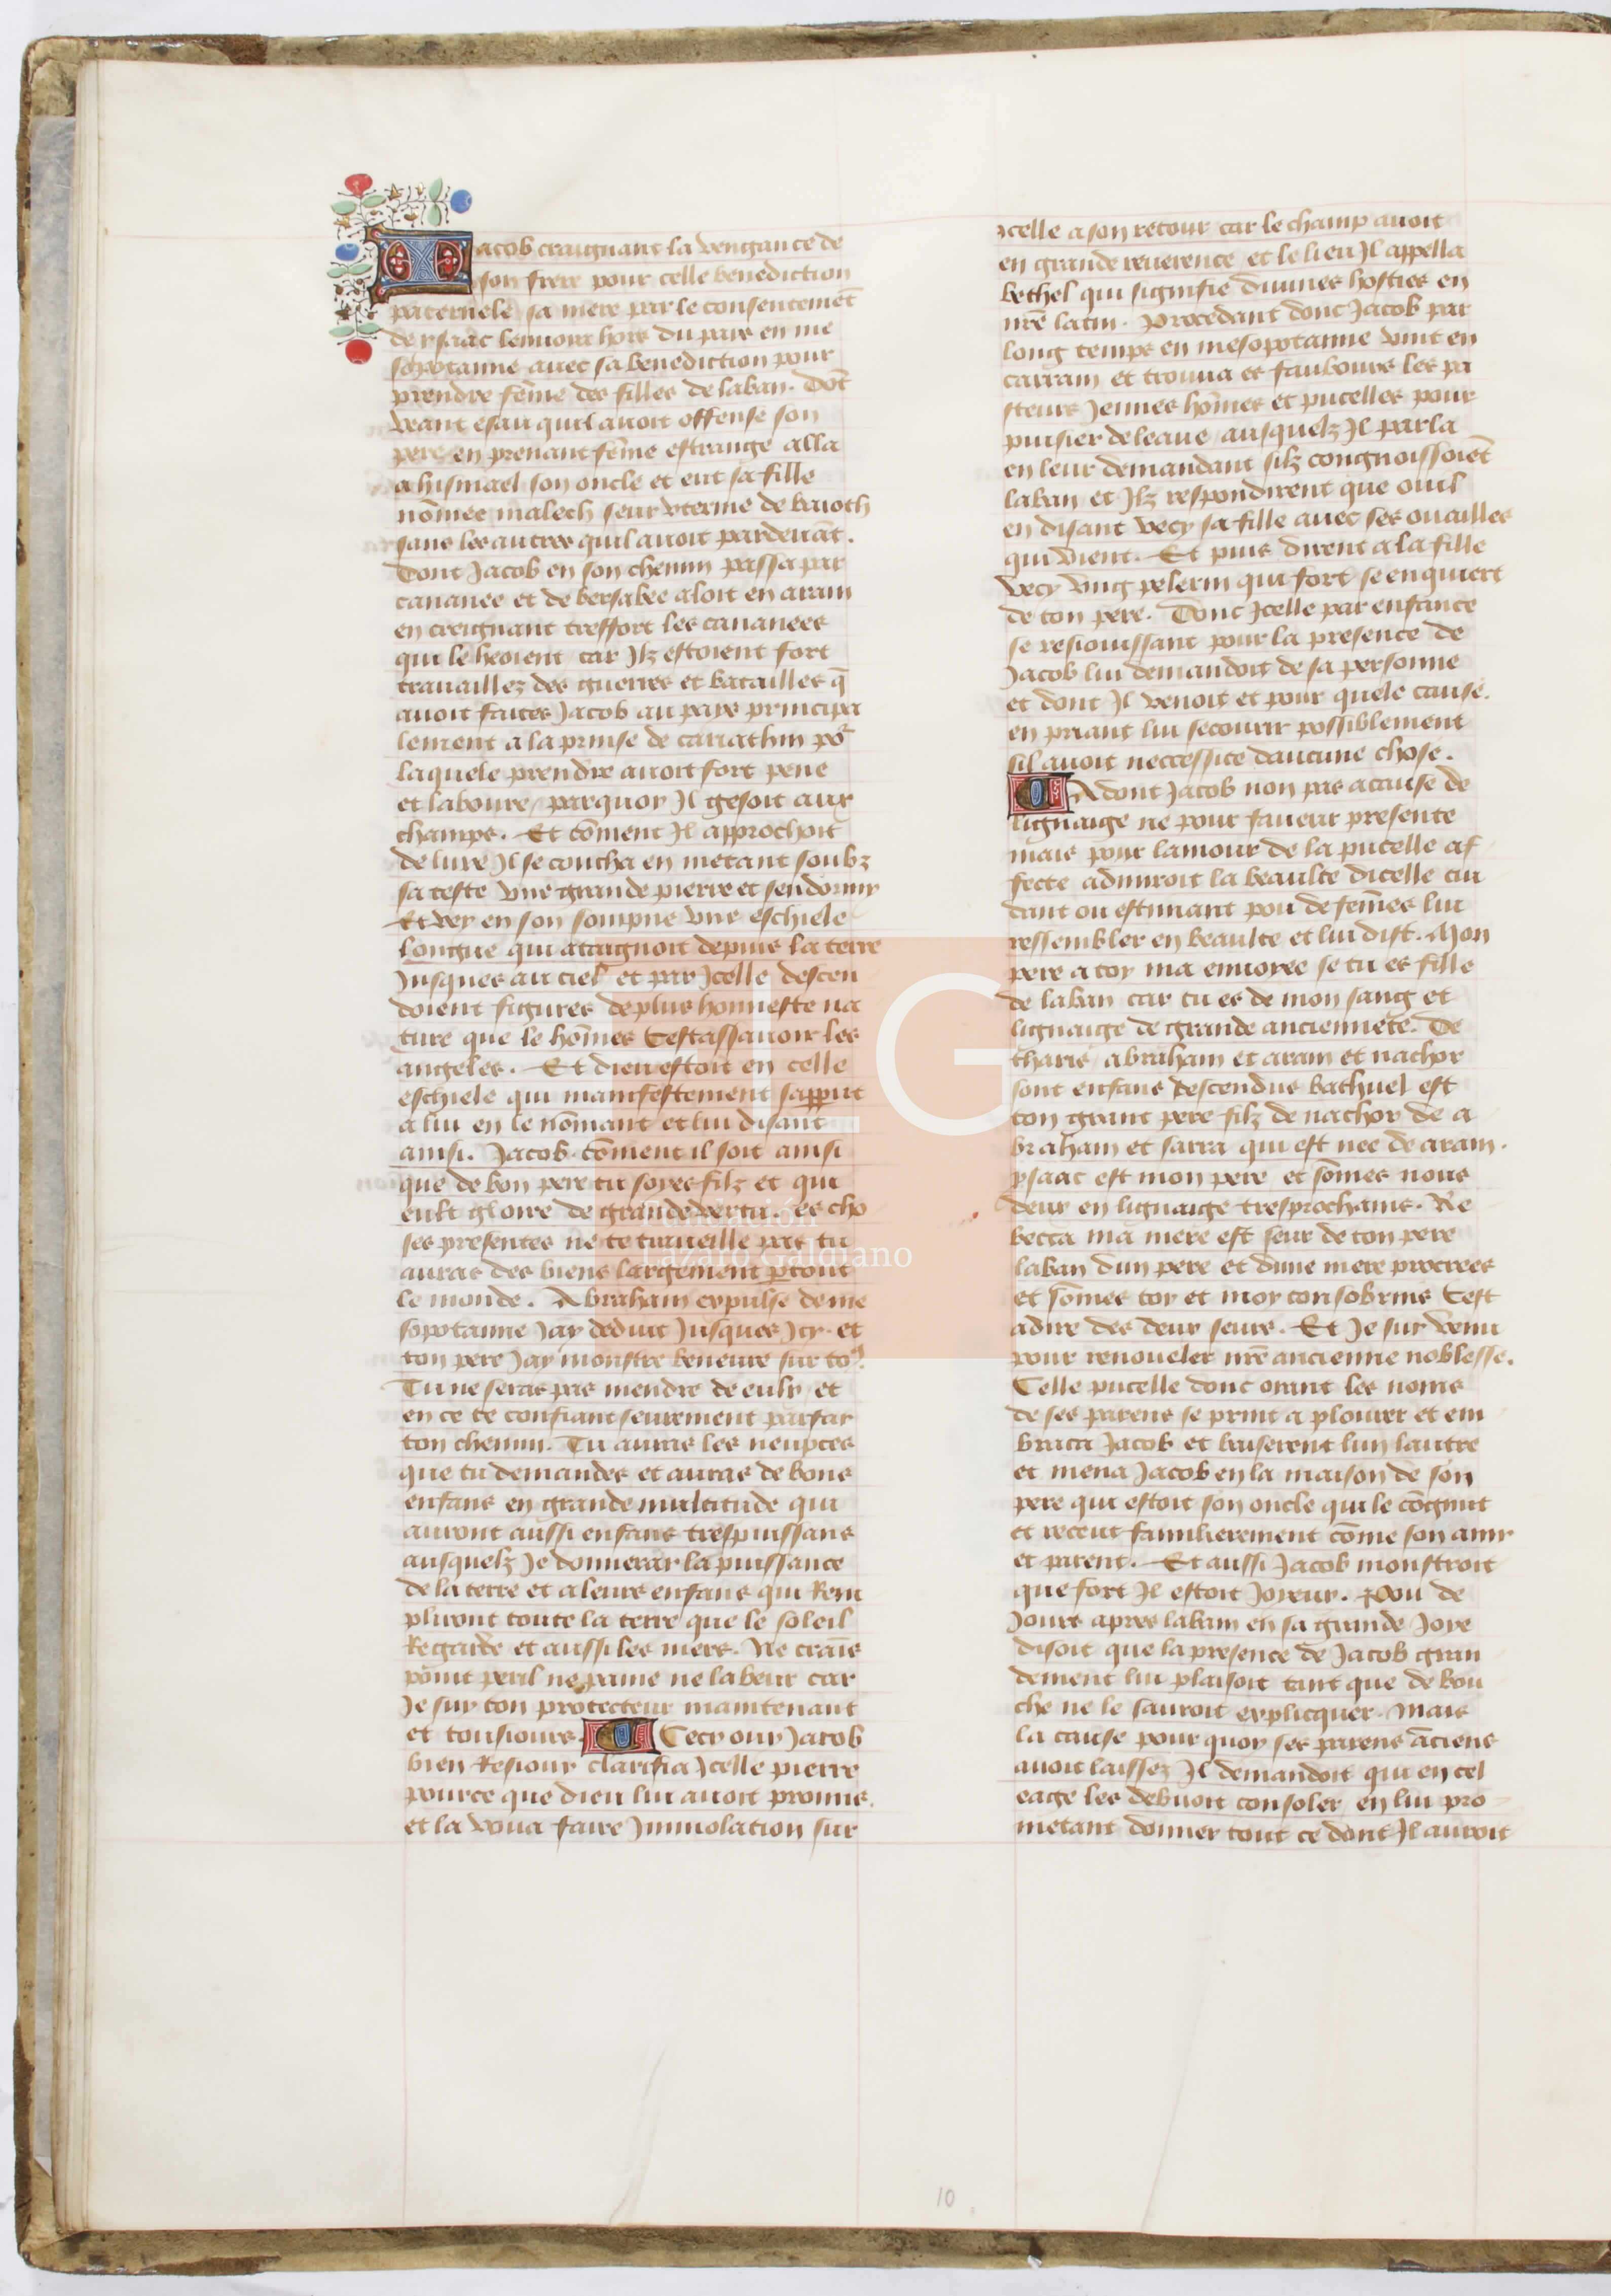 Jacob craignant la vengance de
son frere pour celle benediction
paternele sa mere par le consentemēt
de ysaac lenuoia hors du pays en me
sopotamie auec sa benediction pour
prendre fēme des filles de laban. Dōt
veant esau quil auoit offense son
pere en prenant fēme estrange alla
a hismael son oncle et eut sa fille
nōmee malech seur vterine de baioth
sans les autres quil auoit pardeuāt.
Dont Jacob en son chemin passa par
cananee et de bersabee aloit en aram
en creignant treffort les cananees
qui le heoient car Jlz estoient fort
trauaillez des guerres et batailles q̄
auoit faites Jacob au pays principa
lement a la prinse de cariathin po᷑
laquele prendre auoit fort pene
et laboure, parquoy Jl gesoit aux
champs. Et cōment Jl approchoit
de luze Jl se coucha en metant soubz
sa teste vne grande pierre et sendormy
Et vey en son sompne vne eschiele
longue qui ataignoit depuis la terre
Jusques au ciel et par Jcelle descen
doient figures de plus honneste na
ture que le hōmes Cestassauoir les
angeles. Et dieu estoit en celle
eschiele qui manifestement sapput
a lui en le nōmant et lui disant
ainsi. Jacob cōment il soit ainsi
que de bon pere tu soyes filz et qui
eult gloire de grande vertu. es cho
ses presentes ne te traueille pas tu
auras des biens largement ꝑtout
le monde. Abraham expulse de me
sopotamie Jay deduit Jusques Jcy. et
ton pere Jay monstre beneure sur to⁹.
Tu ne seras pas mendre de eulx et
en ce te confiant seurement parfay
ton chemin. Tu auras les neupces
que tu demandes et auras de bons
enfans en grande multitude qui
auront aussi enfans trespuissans
ausquelz Je donneray la puissance
de la terre et a leurs enfans qui Rem
pliront toute la terre que le soleil
Regarde et aussi les mers. Ne craīs
point peril ne paine ne labeur car
Je suy ton protecteur maintenant
et tousiours. Cecy ouy Jacob
bien Resiouy clarifia Jcelle pierre
pource que dieu lui auoit promis.
et la voua faire Jmmolation sur
icelle a son retour car le champ auoit
en grande reuerence et le lieu Jl appella
bethel qui signifie diuines hosties en
nr̄e latin. Procedant donc Jacob par
long temps en mesopotamie vint en
carram et trouua es faubours les pa
steurs Jennes hōmes et pucelles pour
puisier de leaue, ausquelz Jl parla
en leur demandant silz congnoissoiēt
laban et Jlz respondirent que ouil
en disant vecy sa fille auec ses ouailles
qui vient. Et puis dirent a la fille
vecy vng pelerin qui fort se enquiert
de ton pere. Donc Jcelle par enfance
se resiouissant pour la presence de
Jacob lui demandoit de sa personne
et dont Jl venoit et pour quele cause.
en priant lui secourir possiblement
sil auoit neccessite daucune chose.
Adont Jacob non pas acause de
lignaige ne pour faueur presente
mais pour lamour de la pucelle af
fecte admiroit la beaulte dicelle cui
dant ou estimant pou de femēs lui
ressembler en beaulte et lui dist. Mon
pere a toy ma enuoyee se tu es fille
de laban car tu es de mon sang et
lignaige de grande anciennete. De
tharis, abraham et aram et nachor
sont enfans descendus bathuel est
ton grant pere filz de nachor de a
braham et sarra qui est nee de aram.
ysaac est mon pere et sōmes nous
deux en lignaige tresprochains. Re
becca ma mere est seur de ton pere
laban dun pere et dune mere procrees
et sōmes toy et moy consobrins Cest
adire des deux seurs. Et Je suy venu
pour renoueler nr̄e ancienne noblesse.
Celle pucelle donc orant les noms
de ses parens se print a plourer et em
braca Jacob et baiserent lun lautre
et mena Jacob en la maison de son
pere qui estoit son oncle qui le cōgnut
et receut familierement cōme son amy
et parent. Et aussi Jacob monstroit
que fort Jl estoit Joyeux. Pou de
Jours apres labam en sa grande Joye
disoit que la presence de Jacob gran
dement lui plaisoit tant que de bou
che ne le sauroit explicquer. Mais
la cause pour quoy ses parens āciens
auoit laissez Jl demandoit qui en cel
eage les debuoit consoler, en lui pro
metant donner tout ce dont Jl auroit
LG
Fundación
Lázaro Galdiano
10